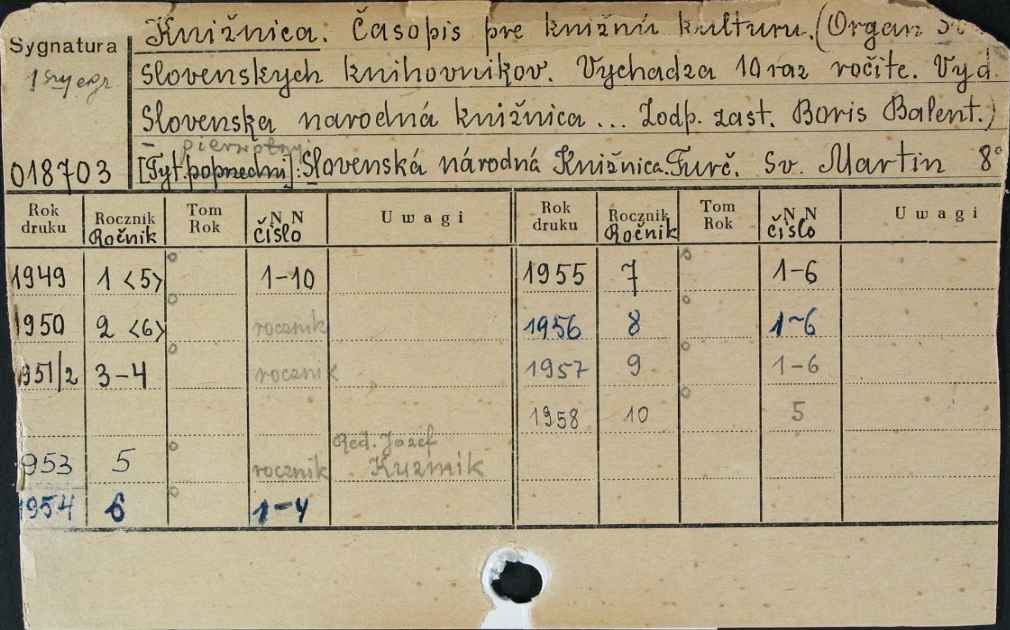 Knižnica. Časopis pre knižnú kulturu. (Organ
Sygnatura
slovenskych knihovnikov. Vychadza 10 raz ročite. Vyd.
1 egz.
Slovenska narodná knižnica... Zodp. zast. Boris Balent.)
pierwotny
018703 [Tyt. poprzedni]: Slovenská národná Knižnica. Turč. Sv. Martin 8°
Rok druku Rocznik Ročnik Tom Rok N N čislo Uwagi Rok druku Rocznik Ročnik Tom Rok N N čislo Uwagi
1949 1 <5> ° 1-10 1955 7 ° 1-6
1950 2 <6> ° rocznik 1956 8 ° 1-6
1951/2 3-4 ° rocznik 1957 9 ° 1-6
1958 10 ° 5
Red. Jozef
953 5 ° rocznik Kuzmik
1954 6 ° 1-4